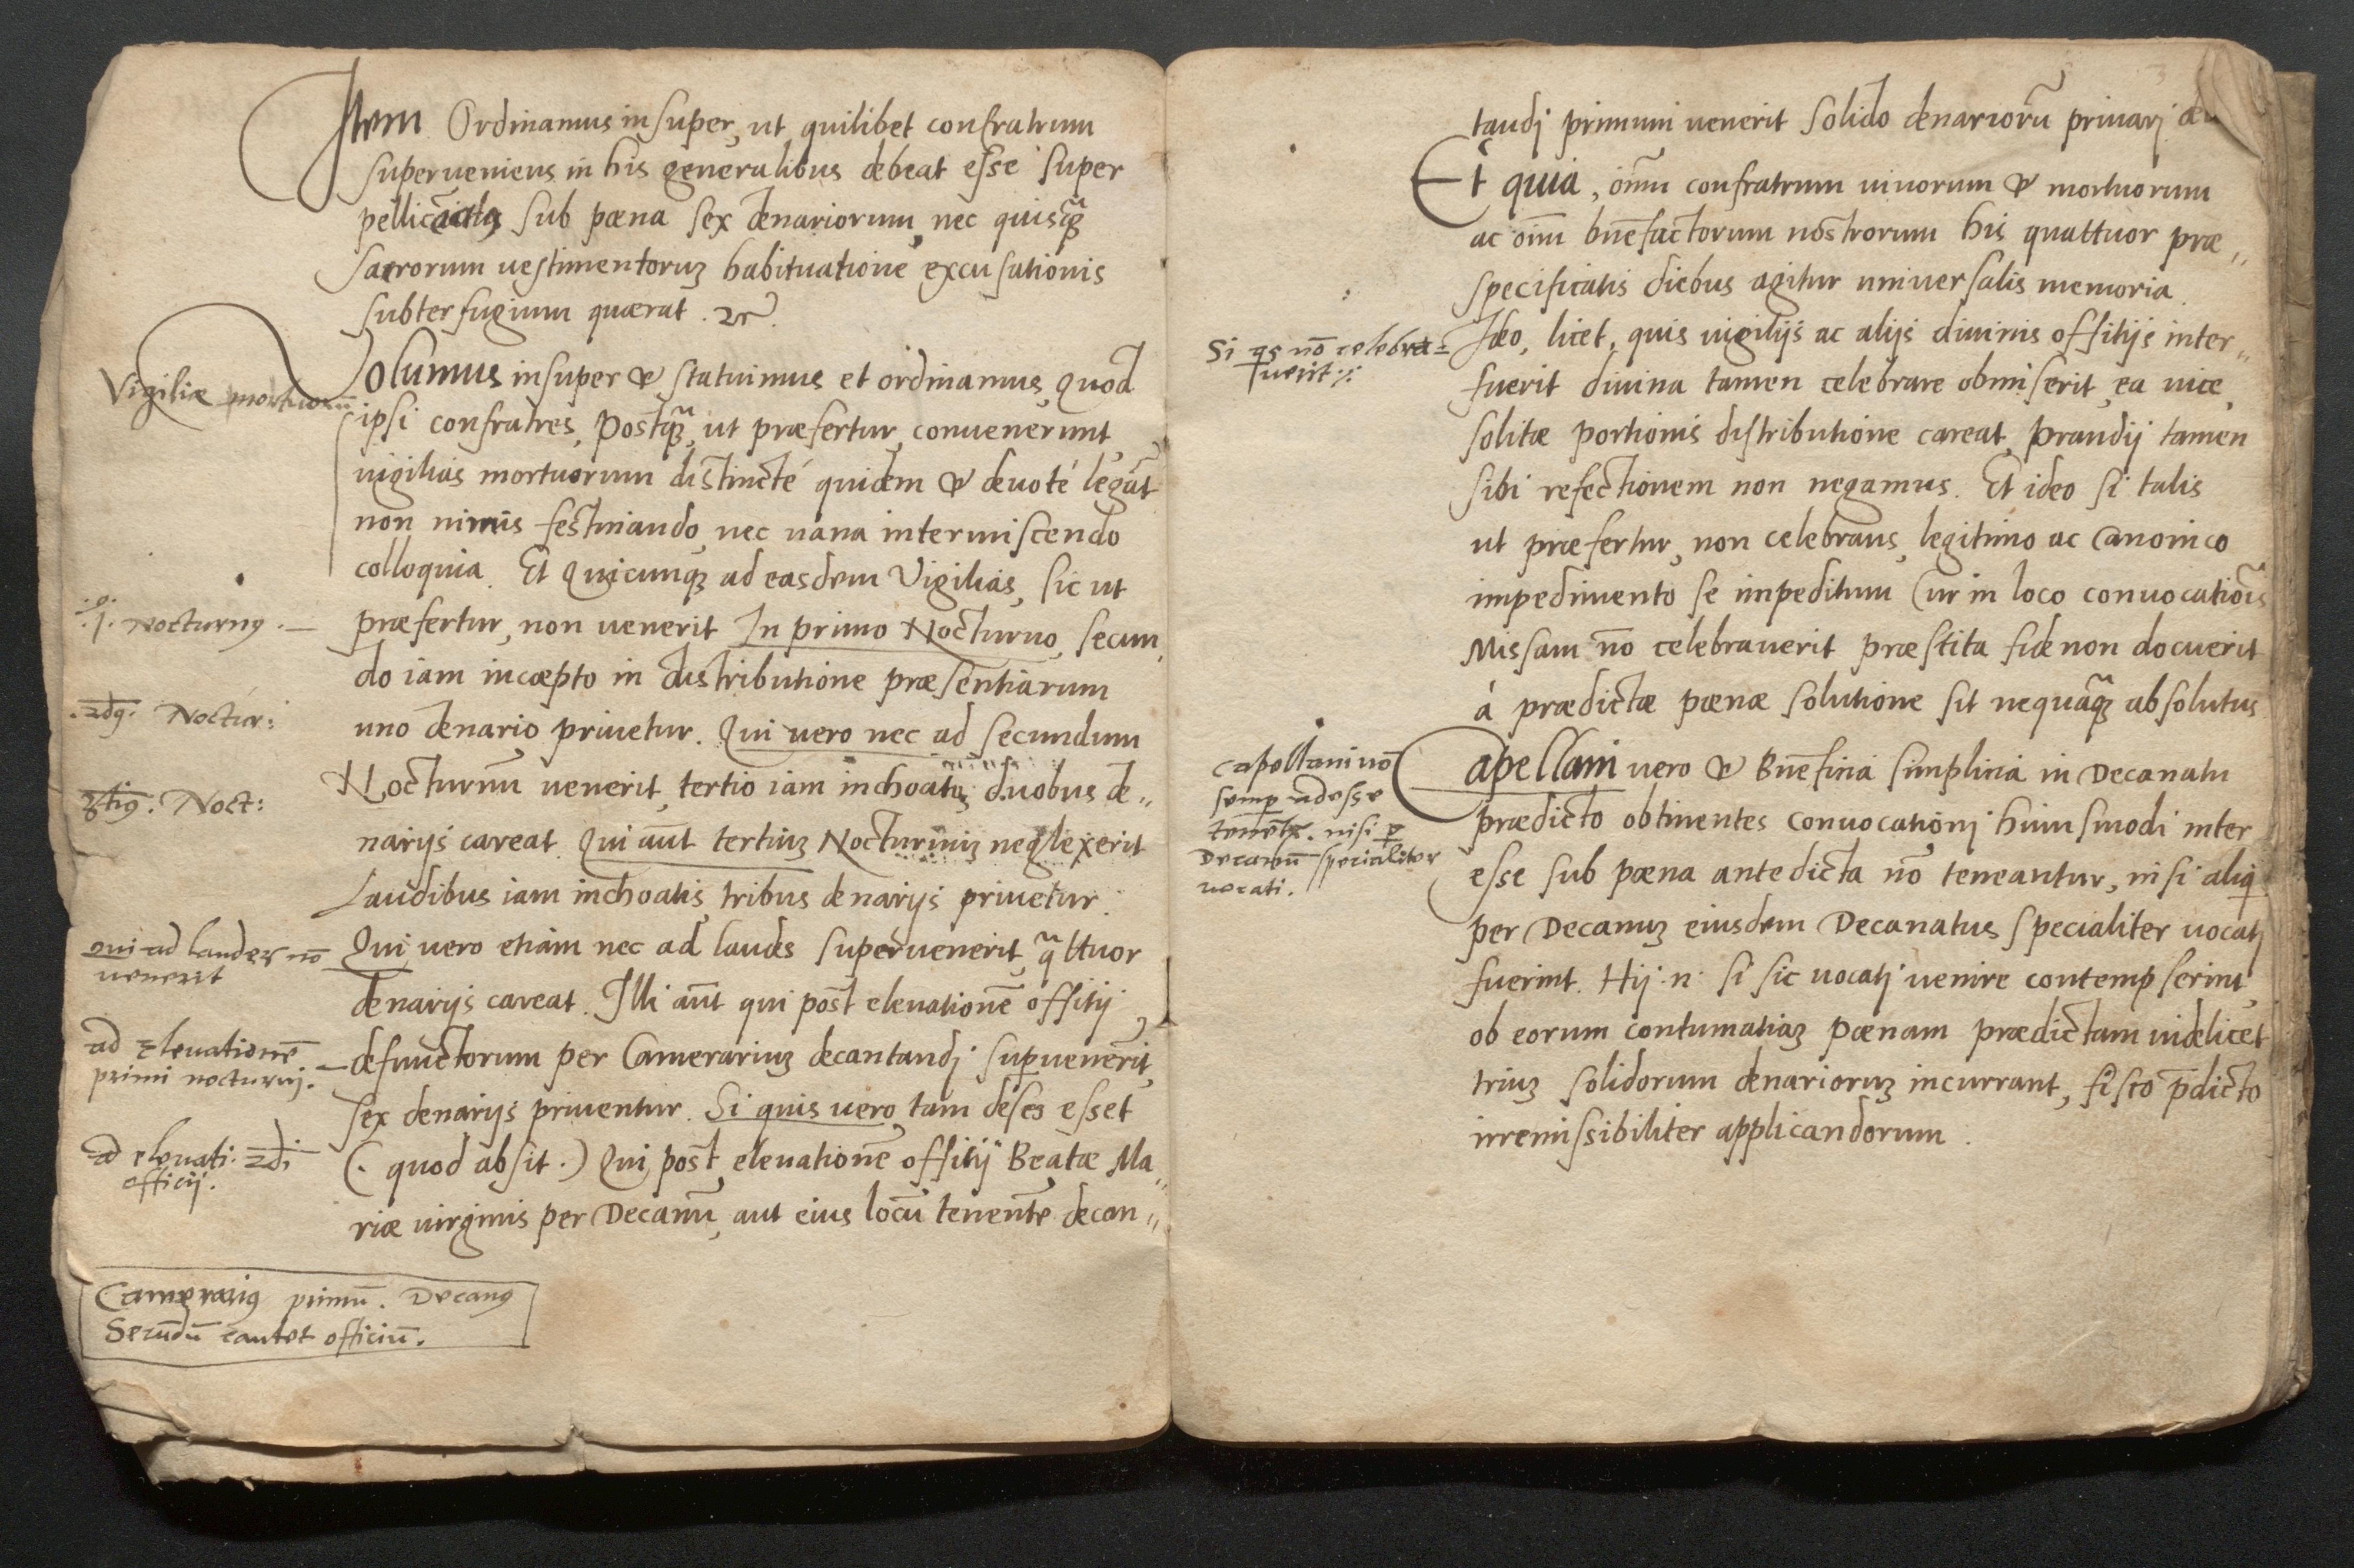 Item Ordinamus insuper, ut quilibet confratrum
superueniens in his generalibus debeat esse super
pellic sub pœna sex denariorum, nec quisq̃
sacrorum uestimentoruȝ habituatione excusationis
subterfugium quærat. ꝛc.
Vigiliæ mortuorũ
Volumus insuper & statuimus et ordinamus, Quod
ipsi confratres, Postq̃ȝ, ut præfertur, conuenerunt,
uigilias mortuorum distincté quidem & deuoté legãt
non nimis festinando, nec uana intermiscendo
colloquia. Et Quicunqȝ ad easdem Vigilias, sic ut
.1. Nocturnꝰ.
præfertur, non uenerit In primo Nocturno, secun,
do iam incœpto in distributione præsentiarum
.2dꝰ. Noctur:
uno denario priuetur. Qui uero nec ad secundum
Nocturnũ uenerit, tertio iam inchoato, duobus de„
3tiꝰ. Noct:
narijs careat. Qui aũt tertiuȝ Nocturnuȝ neglexerit
Laudibus iam inchoatis, tribus denarijs priuetur.
Qui ad laudes nõ
uenerit
Qui uero etiam nec ad laudes superuenerit, q̃ttuor
denarijs careat. Illi aũt qui post eleuationẽ offitij
ad Eleuationẽ
primi nocturnj.
defunctorum per Camerariuȝ decantandj supuenerit,
sex denarijs priuentur. Si quis uero, tam deses esset
ad eleuati. 2di
officij.
(. quod absit .) Qui post eleuationẽ offitij Beatæ Ma„
riæ uirginis per Decanũ, aut eius locũ tenentẽ decan„
Camerariꝰ primũ. Decanꝰ
Secũdũ cantet officiũ.
tandj primum uenerit Solido denariorũ priuarj
Et quia, oĩm confratrum uiuorum & mortuorum
ac oĩm bñefactorum nostrorum his quattuor præ„
specificatis diebus agitur uniuersalis memoria.
Si qs nõ celebra=
uerit
Ideo, licet, quis uigilijs ac alijs diuinis offitijs inter„
fuerit diuina tamen celebrare obmiserit, ea uice,
solitæ portionis distributione careat, Prandij tamen
sibi refectionem non negamus. Et ideo si talis
ut præfertur, non celebrans, legitimo ac Canonico
impedimento se impeditum Cur in loco conuocatiõis
Missam nõ celebrauerit præstita fide non docuerit
á prædictæ pœnæ solutione sit nequaq̃ȝ absolutus
Capellani nõ
semp adesse
tenẽtr. nisi p
Decanũ specialiter
uocati.
Capellani uero & Bñeficia simplicia in Decanatu
prædicto obtinentes conuocationj huiusmodi inter
esse sub pœna antedicta nõ teneantur, nisi aliq
per Decanuȝ eiusdem Decanatus specialiter uocatj
fuerint. Hij .n. si sic uocatj uenire contempserint,
ob eorum contumatiaȝ Pœnam prædictam uidelicet
triuȝ solidorum denarioruȝ incurrant, fisco p̃dicto
irremissibiliter applicandorum.